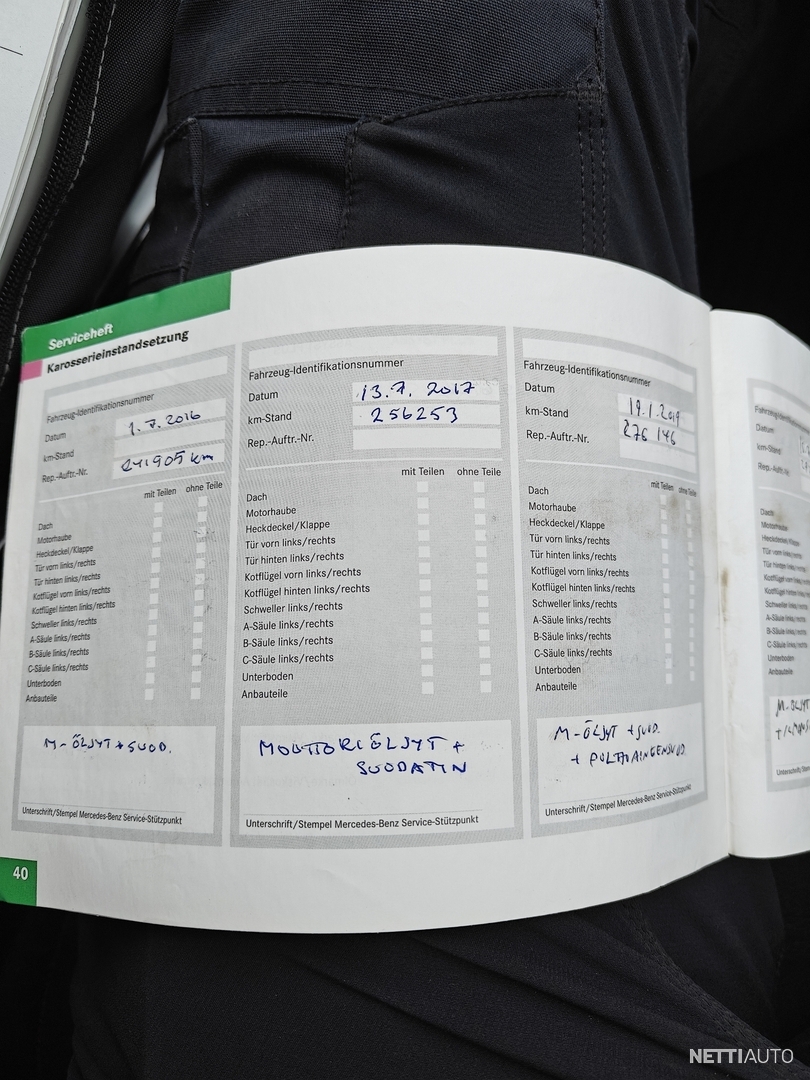 Serviceheft
Karosserieinstandsetzung
Fahrzeug-Identifikationsnummer
Datum 1.7.2016
km-Stand 241905 km
Rep.-Auftr.-Nr.
mit Teilen ohne Teile
Dach
Motorhaube
Heckdeckel/Klappe
Tür vorn links/rechts
Tür hinten links/rechts
Kotflügel vorn links/rechts
Kotflügel hinten links/rechts
Schweller links/rechts
A-Säule links/rechts
B-Säule links/rechts
C-Säule links/rechts
Unterboden
Anbauteile
M-ÖLJYT + SUOD.
Unterschrift/Stempel Mercedes-Benz Service-Stützpunkt
40
Fahrzeug-Identifikationsnummer
Datum 13.7.2017
km-Stand 256253
Rep.-Auftr.-Nr.
mit Teilen ohne Teile
Dach
Motorhaube
Heckdeckel/Klappe
Tür vorn links/rechts
Tür hinten links/rechts
Kotflügel vorn links/rechts
Kotflügel hinten links/rechts
Schweller links/rechts
A-Säule links/rechts
B-Säule links/rechts
C-Säule links/rechts
Unterboden
Anbauteile
MOOTTORIÖLJYT +
SUODATIN
Unterschrift/Stempel Mercedes-Benz Service-Stützpunkt
Fahrzeug-Identifikationsnummer
Datum 19.1.2019
km-Stand 276 146
Rep.-Auftr.-Nr.
mit Teilen ohne Teile
Dach
Motorhaube
Heckdeckel/Klappe
Tür vorn links/rechts
Tür hinten links/rechts
Kotflügel vorn links/rechts
Kotflügel hinten links/rechts
Schweller links/rechts
A-Säule links/rechts
B-Säule links/rechts
C-Säule links/rechts
Unterboden
Anbauteile
M-ÖLJYT + SUOD.
+ POLTTOAINEENSUOD.
Unterschrift/Stempel Mercedes-Benz Service-Stützpunkt
Datum
km-Stand
Rep.-Auftr.-Nr.
Dach
Motorhaube
Tür vorn links/rechts
Tür hinten links/rechts
Schweller links/rechts
A-Säule links/rechts
B-Säule links/rechts
C-Säule links/rechts
Unterboden
Anbauteile
M-ÖLJYT
NETTIAUTO